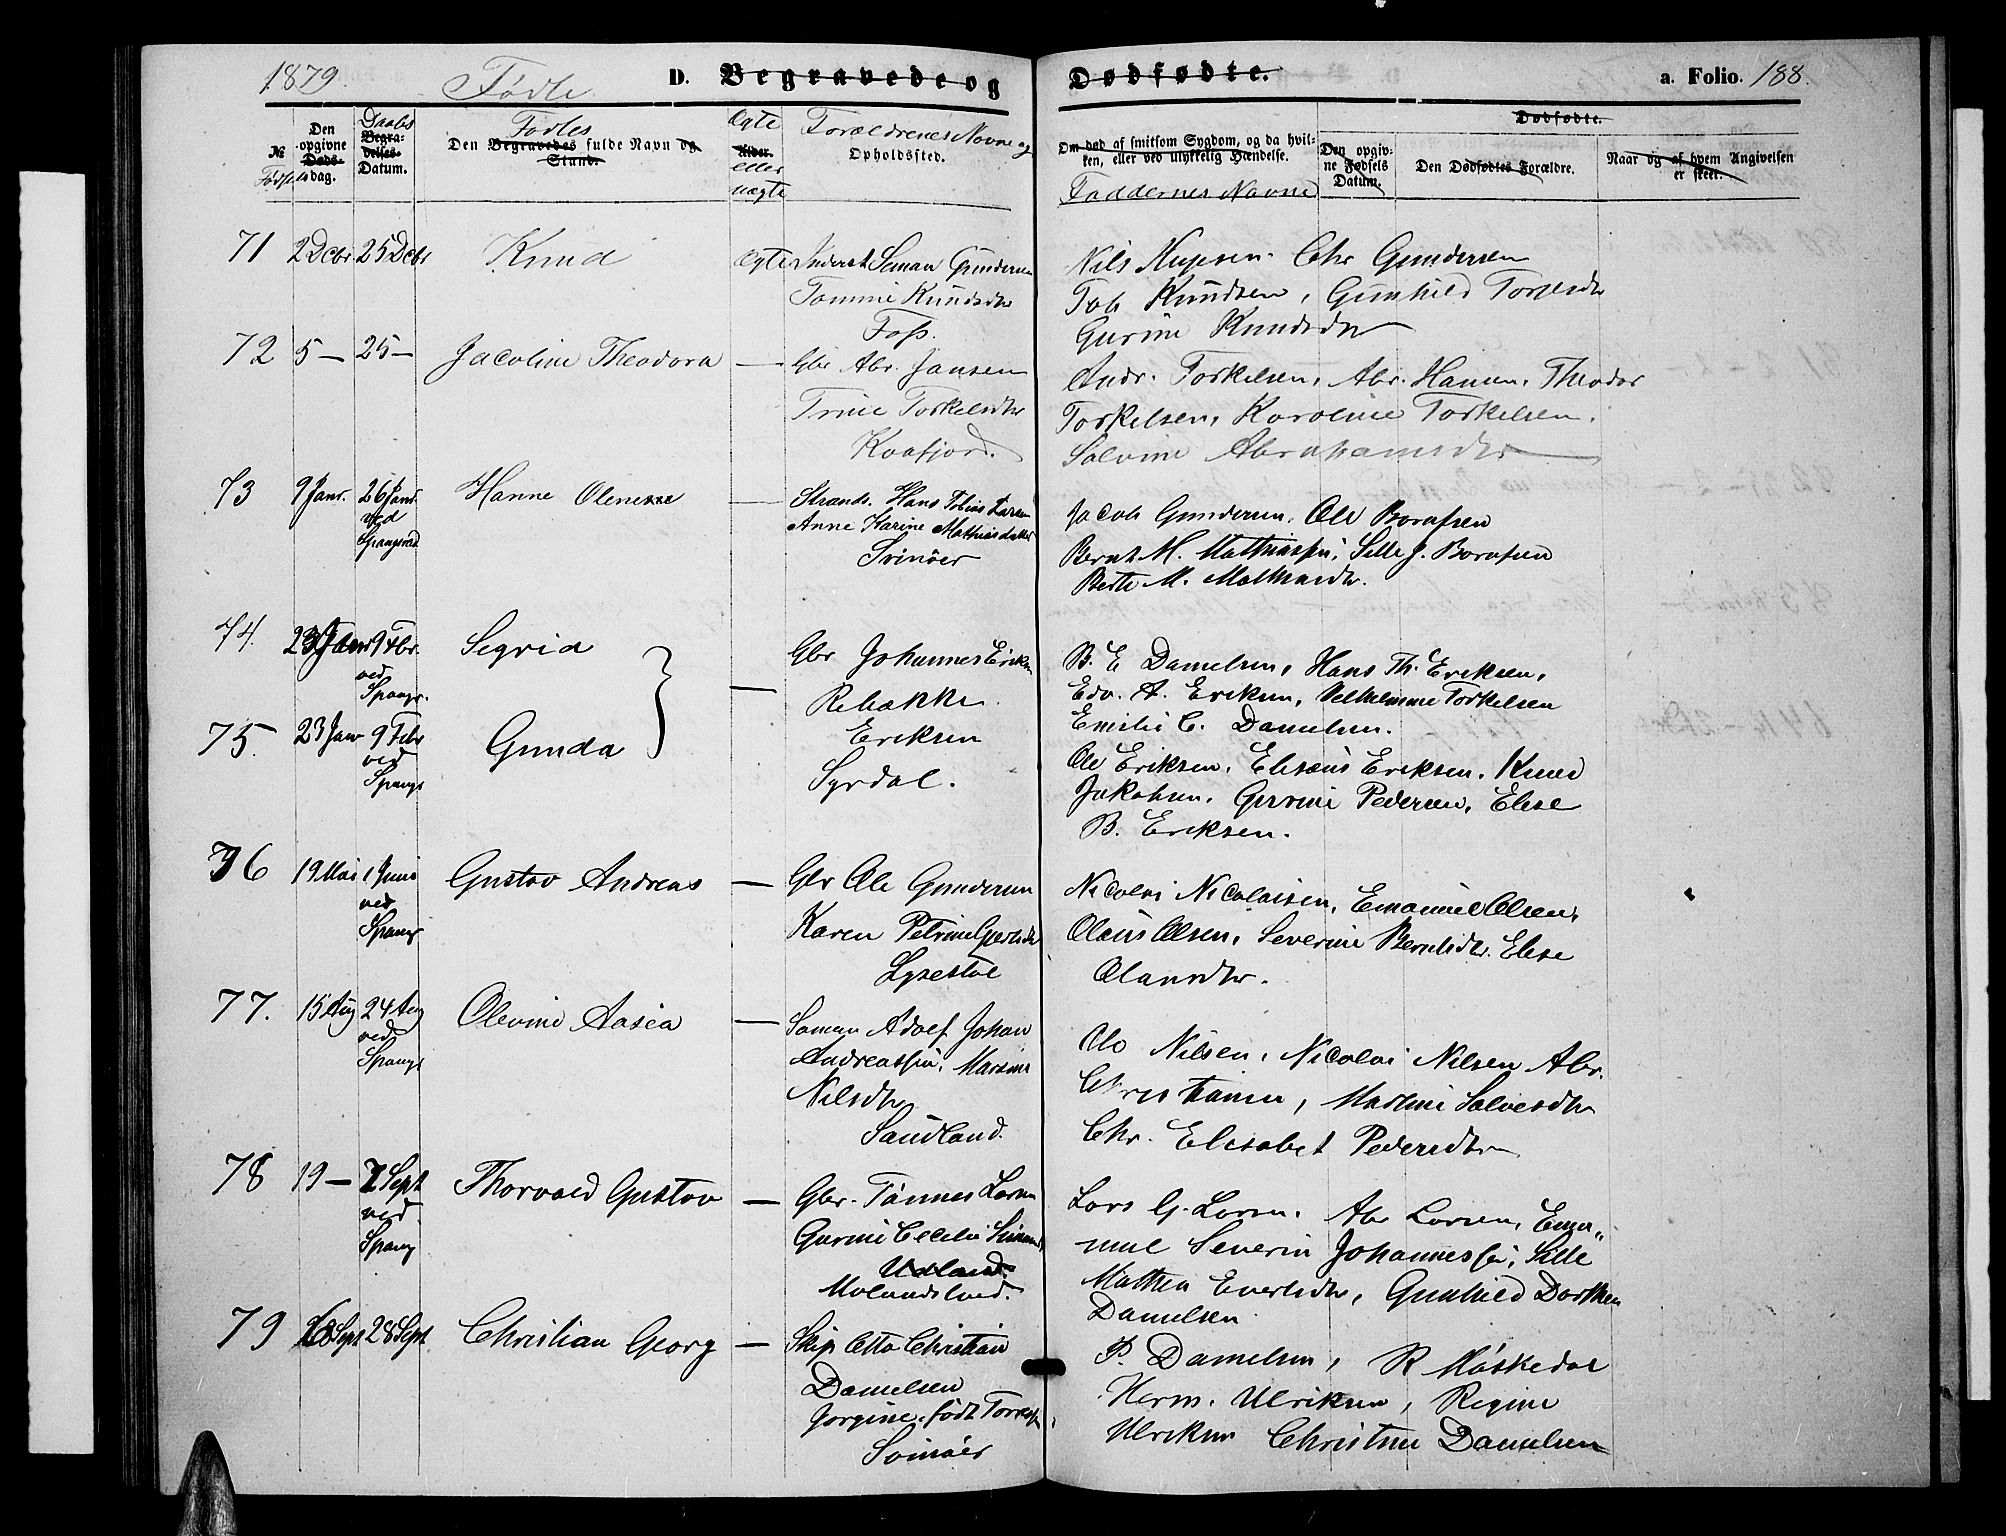 1879. Fødte D. Begravede og Dødfødte. a. Folio. 188.
№ Fødsels
Den opgivne Døds- dag.
Daabs Begra- velses- Datum.
Fødtes
Den Begravedes fulde Navn og Stand.
Ægte Alder. eller uægte
Forældrenes Navne og Opholdssted.
Om død af smitsom Sygdom, og da hvil- ken, eller ved ulykkelig Hændelse.
Faddernes Navne
Dødfødte.
Den opgiv- ne Fødsels Datum.
Den Dødfødtes Forældre.
Naar og af hvem Angivelsen er skeet.
71 2 Dcbr 25 Dcbr Knud Ægte Inderst Seman Gundersen
Tomine Knudsdtr
Foss.
Nils Chr Gundersen
Tob Knudsen, Gunhild
Gurine Knudsdtr
72 5 — 25 — Jacoline Theodora — Gbr Abr. Jansen
Trine Torkelsdtr
Kvafjord.
Andr. Torkelsen, Abr. Hansen, Theodor
Torkelsen, Karoline Torkelsen.
Salvine Abrahamsdtr
73 9 Janr. 26 Janr. ved Spangsrd Hanne — Strands. Hans Tobias Larsen
Anne Karine Mathiasdatter
Svinøer
Jacob Gundersen, Ole
Bernt M. Mathiassen, Sille J.
Berte M. Mathiasdtr.
74. 23 Janr 9 Fbr. ved Spangr. Segrid } — Gbr Johannes Eriksen
Rebækka
Eriksen
Syrdal.
B. E Danielsen, Hans Th. Eriksen,
Edv. A. Eriksen, Velhelmine Torkelsen
Emilie C. Danielsen.
75. 23 Jan 9 Febr ved Spangr Gunda
Ole Eriksen, Elisæus Eriksen, Knud
Jakobsen, Gurine Pedersen, Elise
B. Eriksen.
76 19 Mai 1 Juni ved Spangr Gustav Andreas — Gbr Ole Gundersen
Karen Petrine
Lyxestøl
Nicolai Nicolaisen, Emanuel Olsen,
Olaus Olsen, Severine Berntsdtr. Elise
Olausdtr.
77. 15 Aug 24 Aug ved Spangr Olevine Aasea — Søman Adolf Johan
Andreassen, Marsine
Nilsdtr
Sandland.
Nilsen, Nicolai Nilsen Abr.
Christiansen, Martine Salvesdtr
Chr. Elisabet Pedersdtr
78 19 — 7 Sept ved Spang Thorvald Gustav — Gbr. Tønnes Larsen
Gurine Cecilie
Udland.
Lars G. Larsen. Abr Larsen, Ema„
nuel Severin Johannessen, Sille
Mathea Evertsdtr, Gunhild Dorthea
Danielsen
79 18 Sept 28 Sept Christian Georg — Skip Otto Christian
Danielsen
Jørgine, født
Svinøer
P. Danielsen, R Møskedal
Herm. Ulriksen, Regine
Ulriksen Christine Danielsen